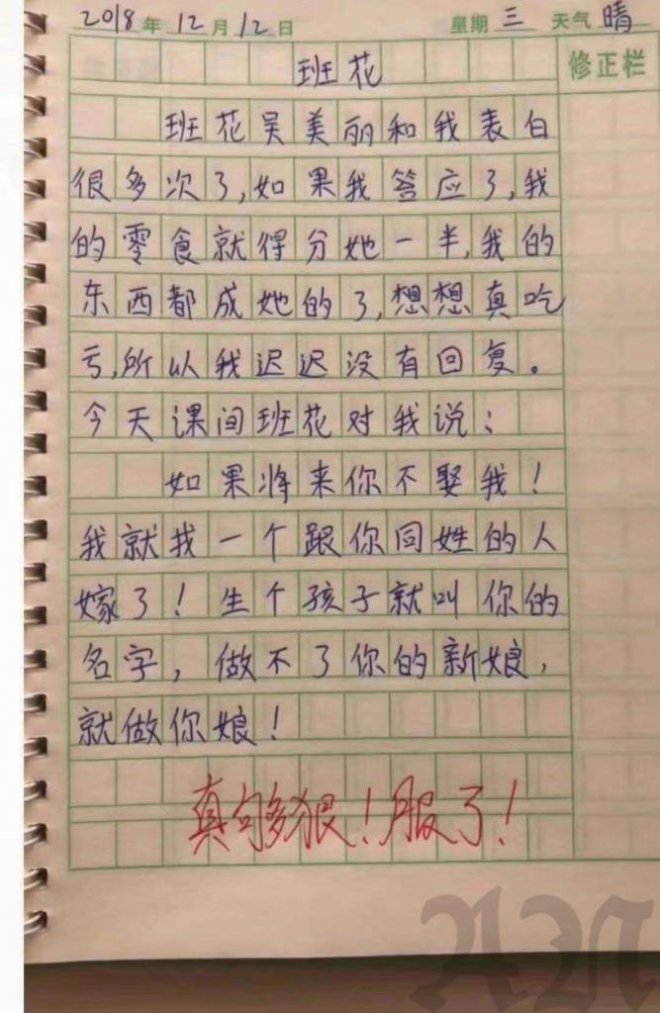 2018年12月12日 星期三 天气晴
班花
修正栏
班花吴美丽和我表白
很多次了,如果我答应了,我
的零食就得分她一半,我的
东西都成她的了,想想真吃
亏,所以我迟迟没有回复。
今天课间班花对我说:
如果将来你不娶我!
我就找一个跟你同姓的人
嫁了!生个孩子就叫你的
名字,做不了你的新娘,
就做你娘!
真够狠!服了!
AN